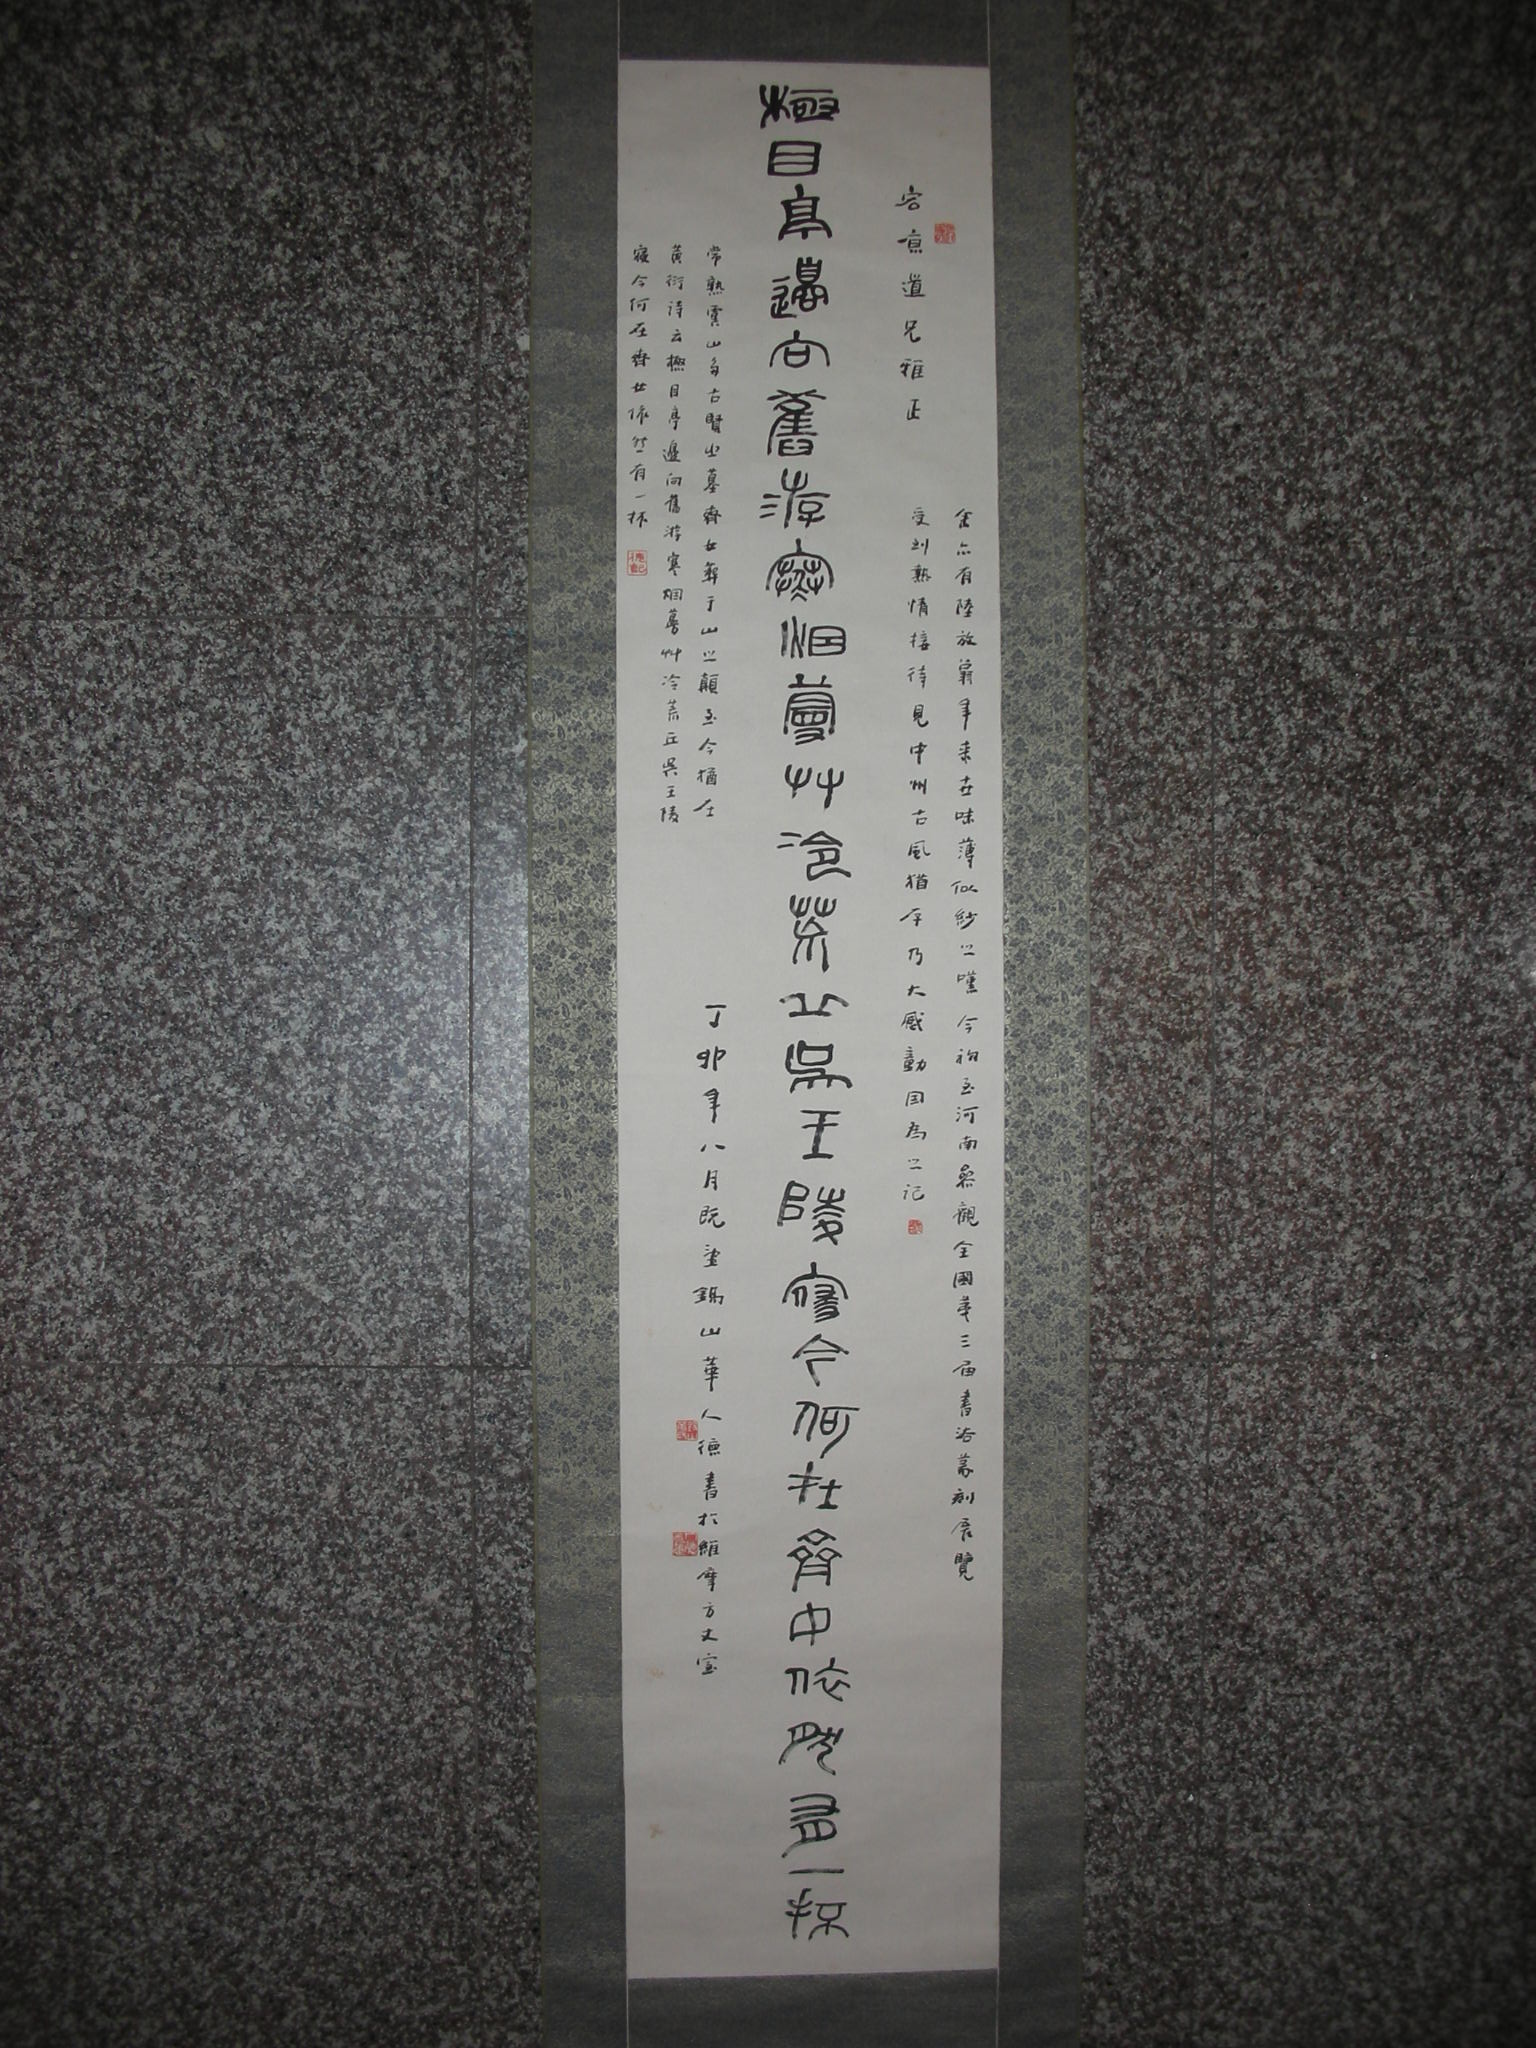 容□道兄雅正
余亦有陸放翁年来世味薄似紗之嘆今初至河南參觀全國第三届書法篆刻展覽
受到熱情接待見中州古風猶存乃大感動因為之記
極目亭邊向舊游寒烟蔓艸冷荒丘吳王陵寢今何在齊女依然有一抔
常熟虞山多古賢之墓齊女葬于山之顛至今猶在
黃衍詩云極目亭邊向舊游寒烟蔓艸冷荒丘吳王陵
寢今何在齊女依然有一抔
丁卯年八月既望錫山華人德書於維摩方丈室